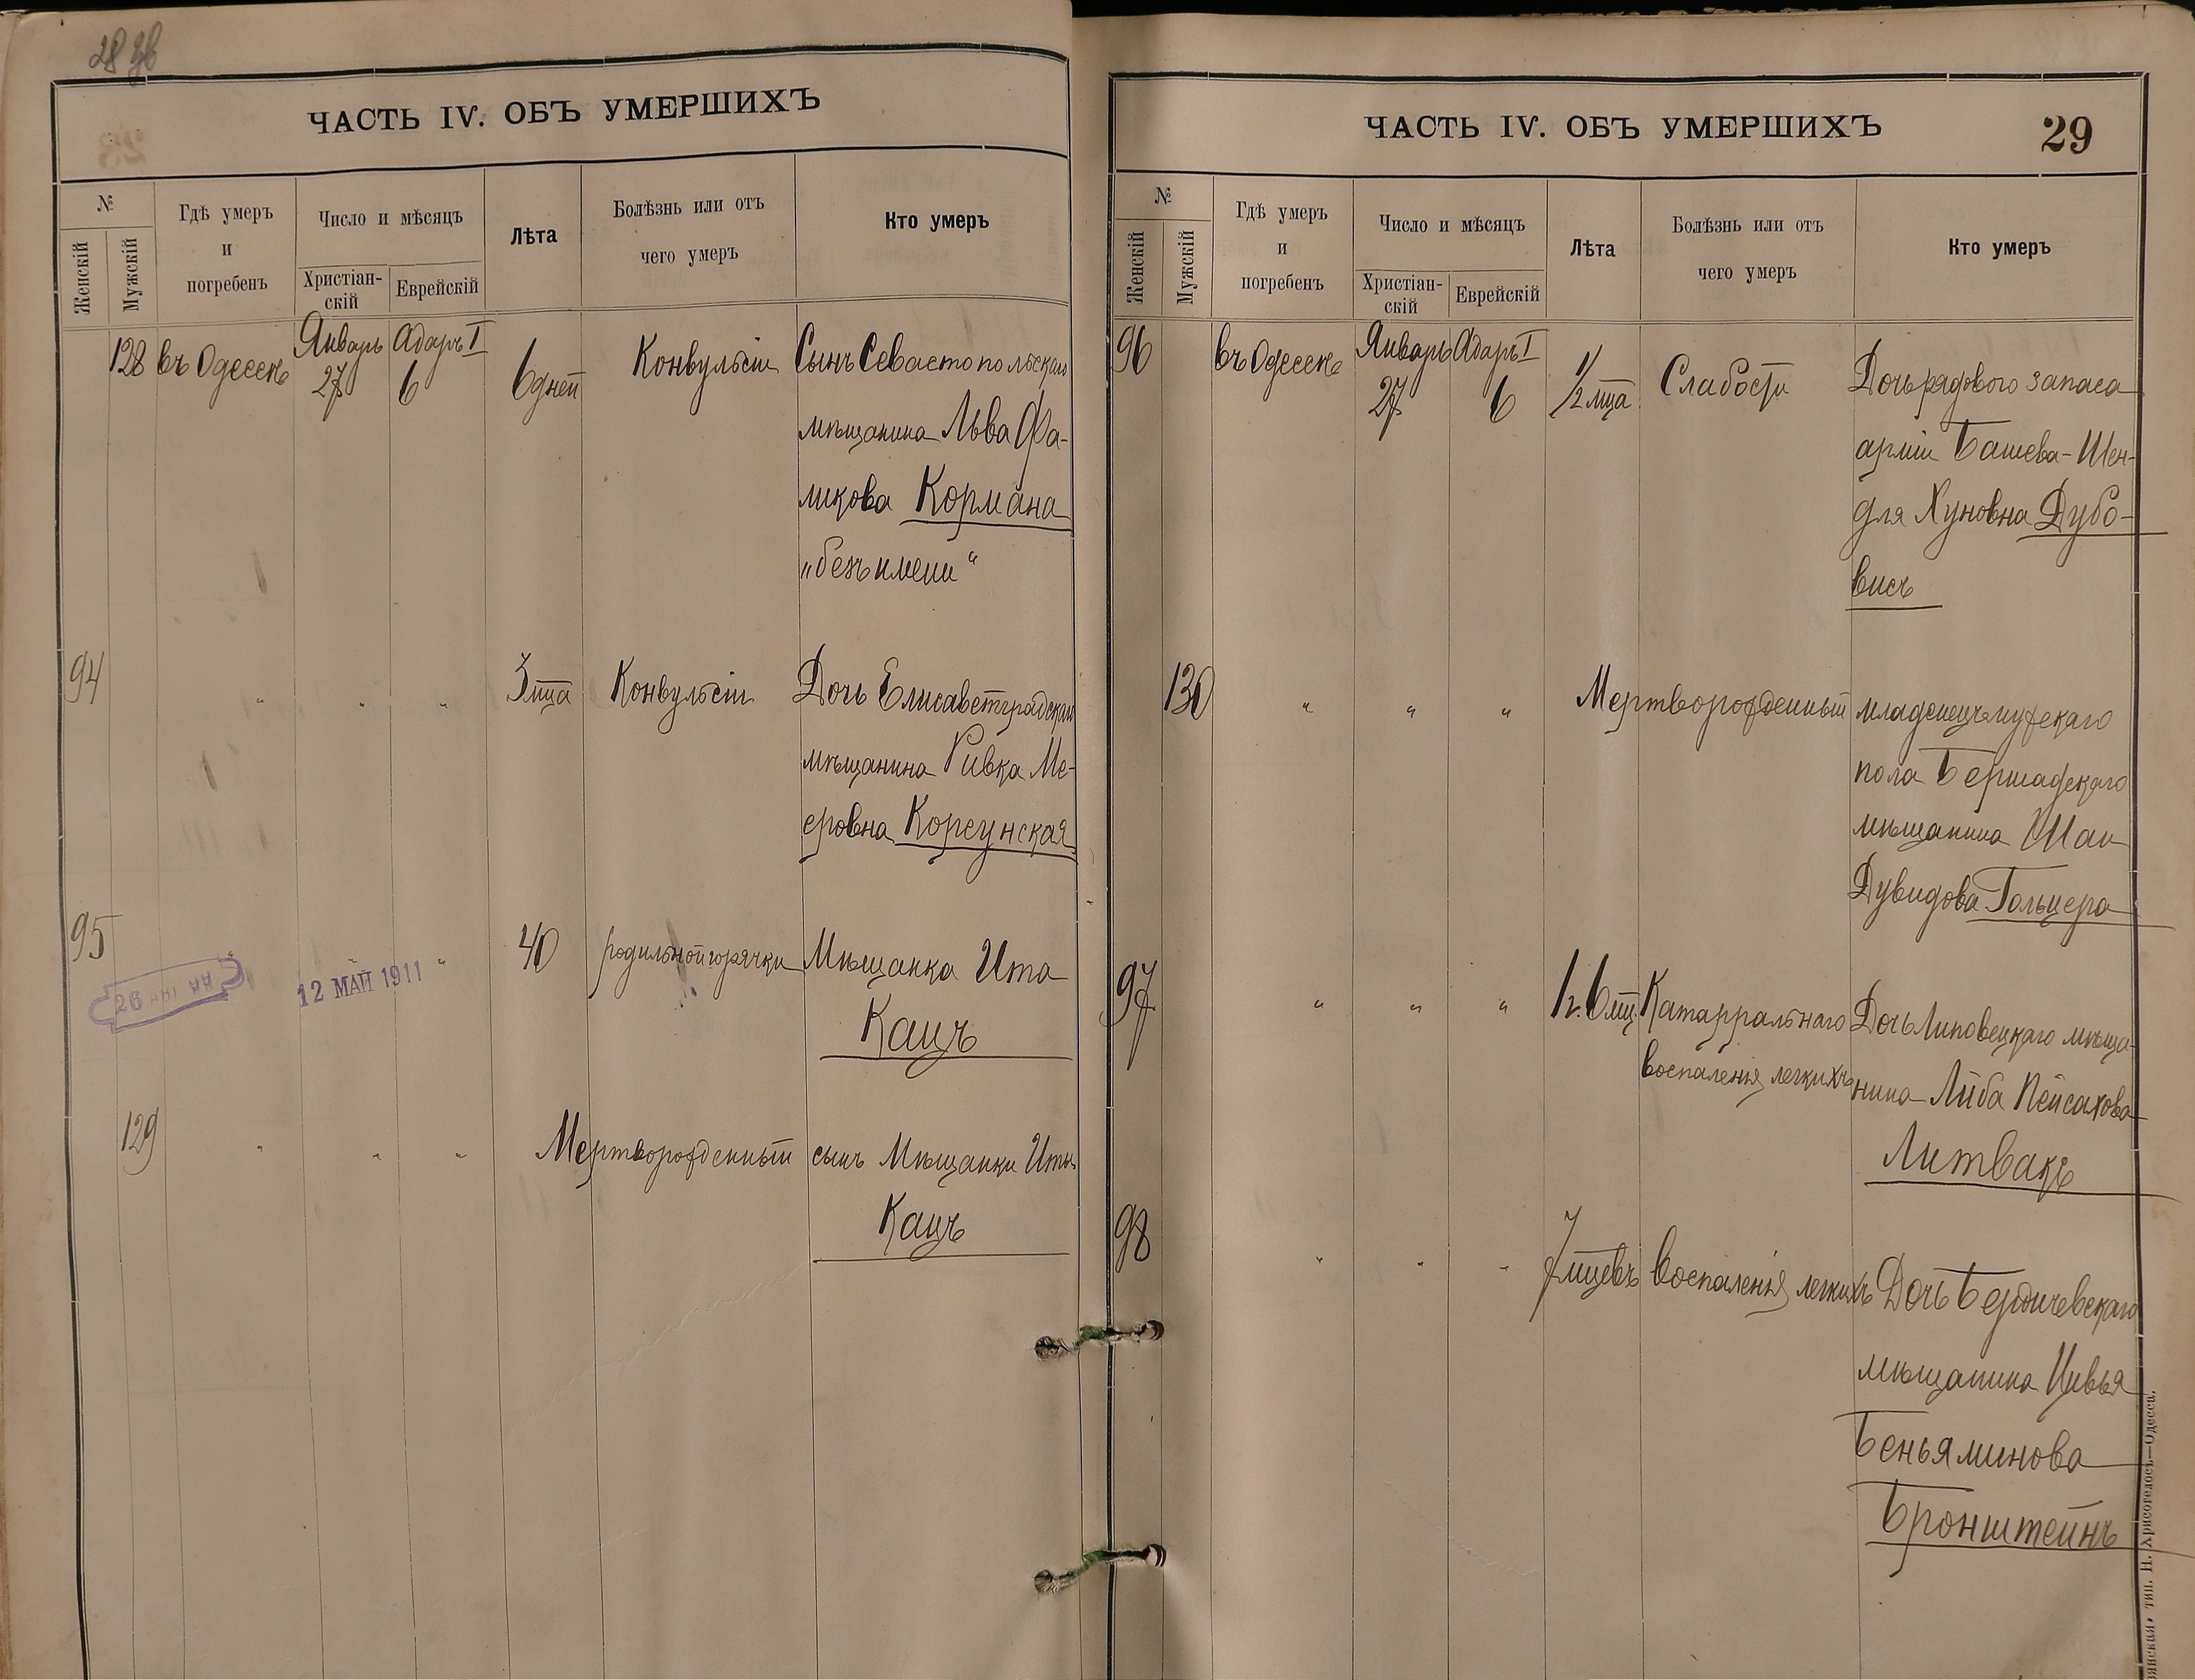 28 об
ЧАСТЬ IV. ОБЪ УМЕРШИХЪ
№
Женскій
Мужскій
Гдѣ умеръ
и
погребенъ
Число и мѣсяцъ
Христіан-
скій
Еврейскій
Лѣта
Болѣзнь или отъ
чего умеръ
Кто умеръ
128 въ Одессѣ Январь 27 Адаръ I 6 6 дней Конвульсіи Сынъ Севастопольскаго
мѣщанина Льва Фа-
ликова Кормана
„безъ имени“
94 " " " 3 мца Конвульсіи Дочь Елисаветградскаго
мѣщанина Ривка Ме-
еровна Корсунская
95 " " " 40 родильной горячки Мѣщанка Ита
Кацъ
12 МАЙ 1911
129 " " " Мертворожденный сынъ Мѣщанки Иты
Кацъ
ЧАСТЬ IV. ОБЪ УМЕРШИХЪ
29
№
Женскій
Мужскій
Гдѣ умеръ
и
погребенъ
Число и мѣсяцъ
Христіан-
скій
Еврейскій
Лѣта
Болѣзнь или отъ
чего умеръ
Кто умеръ
96 въ Одессѣ Январь 27 Адаръ I 6 1/2 мца Слабости Дочь рядового запаса
арміи Башева-Шен-
для Хуновна Дубо-
висъ
130 " " " Мертворожденный младенецъ мужскаго
пола Бершадскаго
мѣщанина Шаи
Дувидова Гольцера
97 " " " 1 г. 6 мц. Катарральнаго Дочь Липовецкаго мѣща-
воспаленія легкихъ нина Либа Пейсахова
Литвакъ
98 " " " 7 мцевъ Воспаленія легкихъ Дочь Бердичевскаго
мѣщанина Цивья
Беньяминова
Бронштейнъ
тип. Н. Хрисогелосъ.—Одесса.